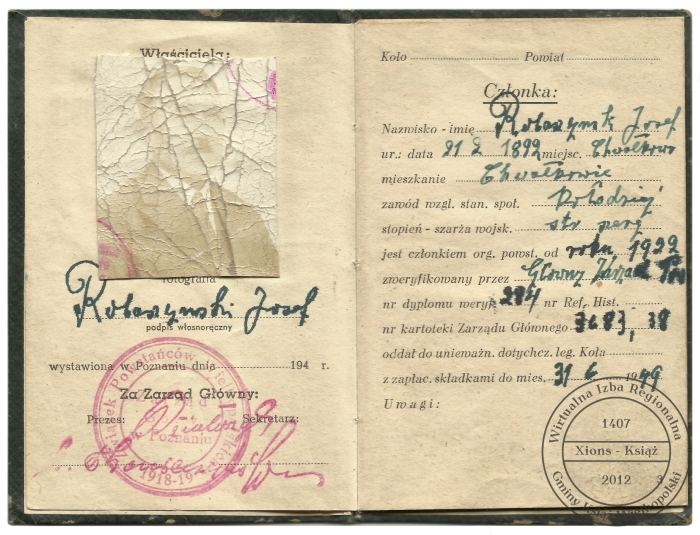 Właściciela:
fotografia
Robaszyński Josef
podpis własnoręczny
wystawiona w Poznaniu dnia 194 r.
Za Zarząd Główny:
Prezes: Sekretarz:
Związek Powstańców Wielkopolskich
w Poznaniu
1918-19
Koło Powiat
Członka:
Nazwisko - imię Josef
ur.: data 21 2 1892 miejsc. Chwałkowo
mieszkanie Chwałkowie
zawód wzgl. stan. społ. Kołodziej
stopień - szarża wojsk.
jest członkiem org. powst. od roku
zweryfikowany przez Główny Zarząd
nr dyplomu weryf. 284 nr Ref. Hist.
nr kartoteki Zarządu Głównego 3683, 38
oddał do unieważn. dotychcz. leg. Koła
z zapłac. składkami do mies. 31 6 1949
Uwagi:
Wirtualna Izba Regionalna
1407
Xions - Książ
2012
Gminy Książ Wielkopolski